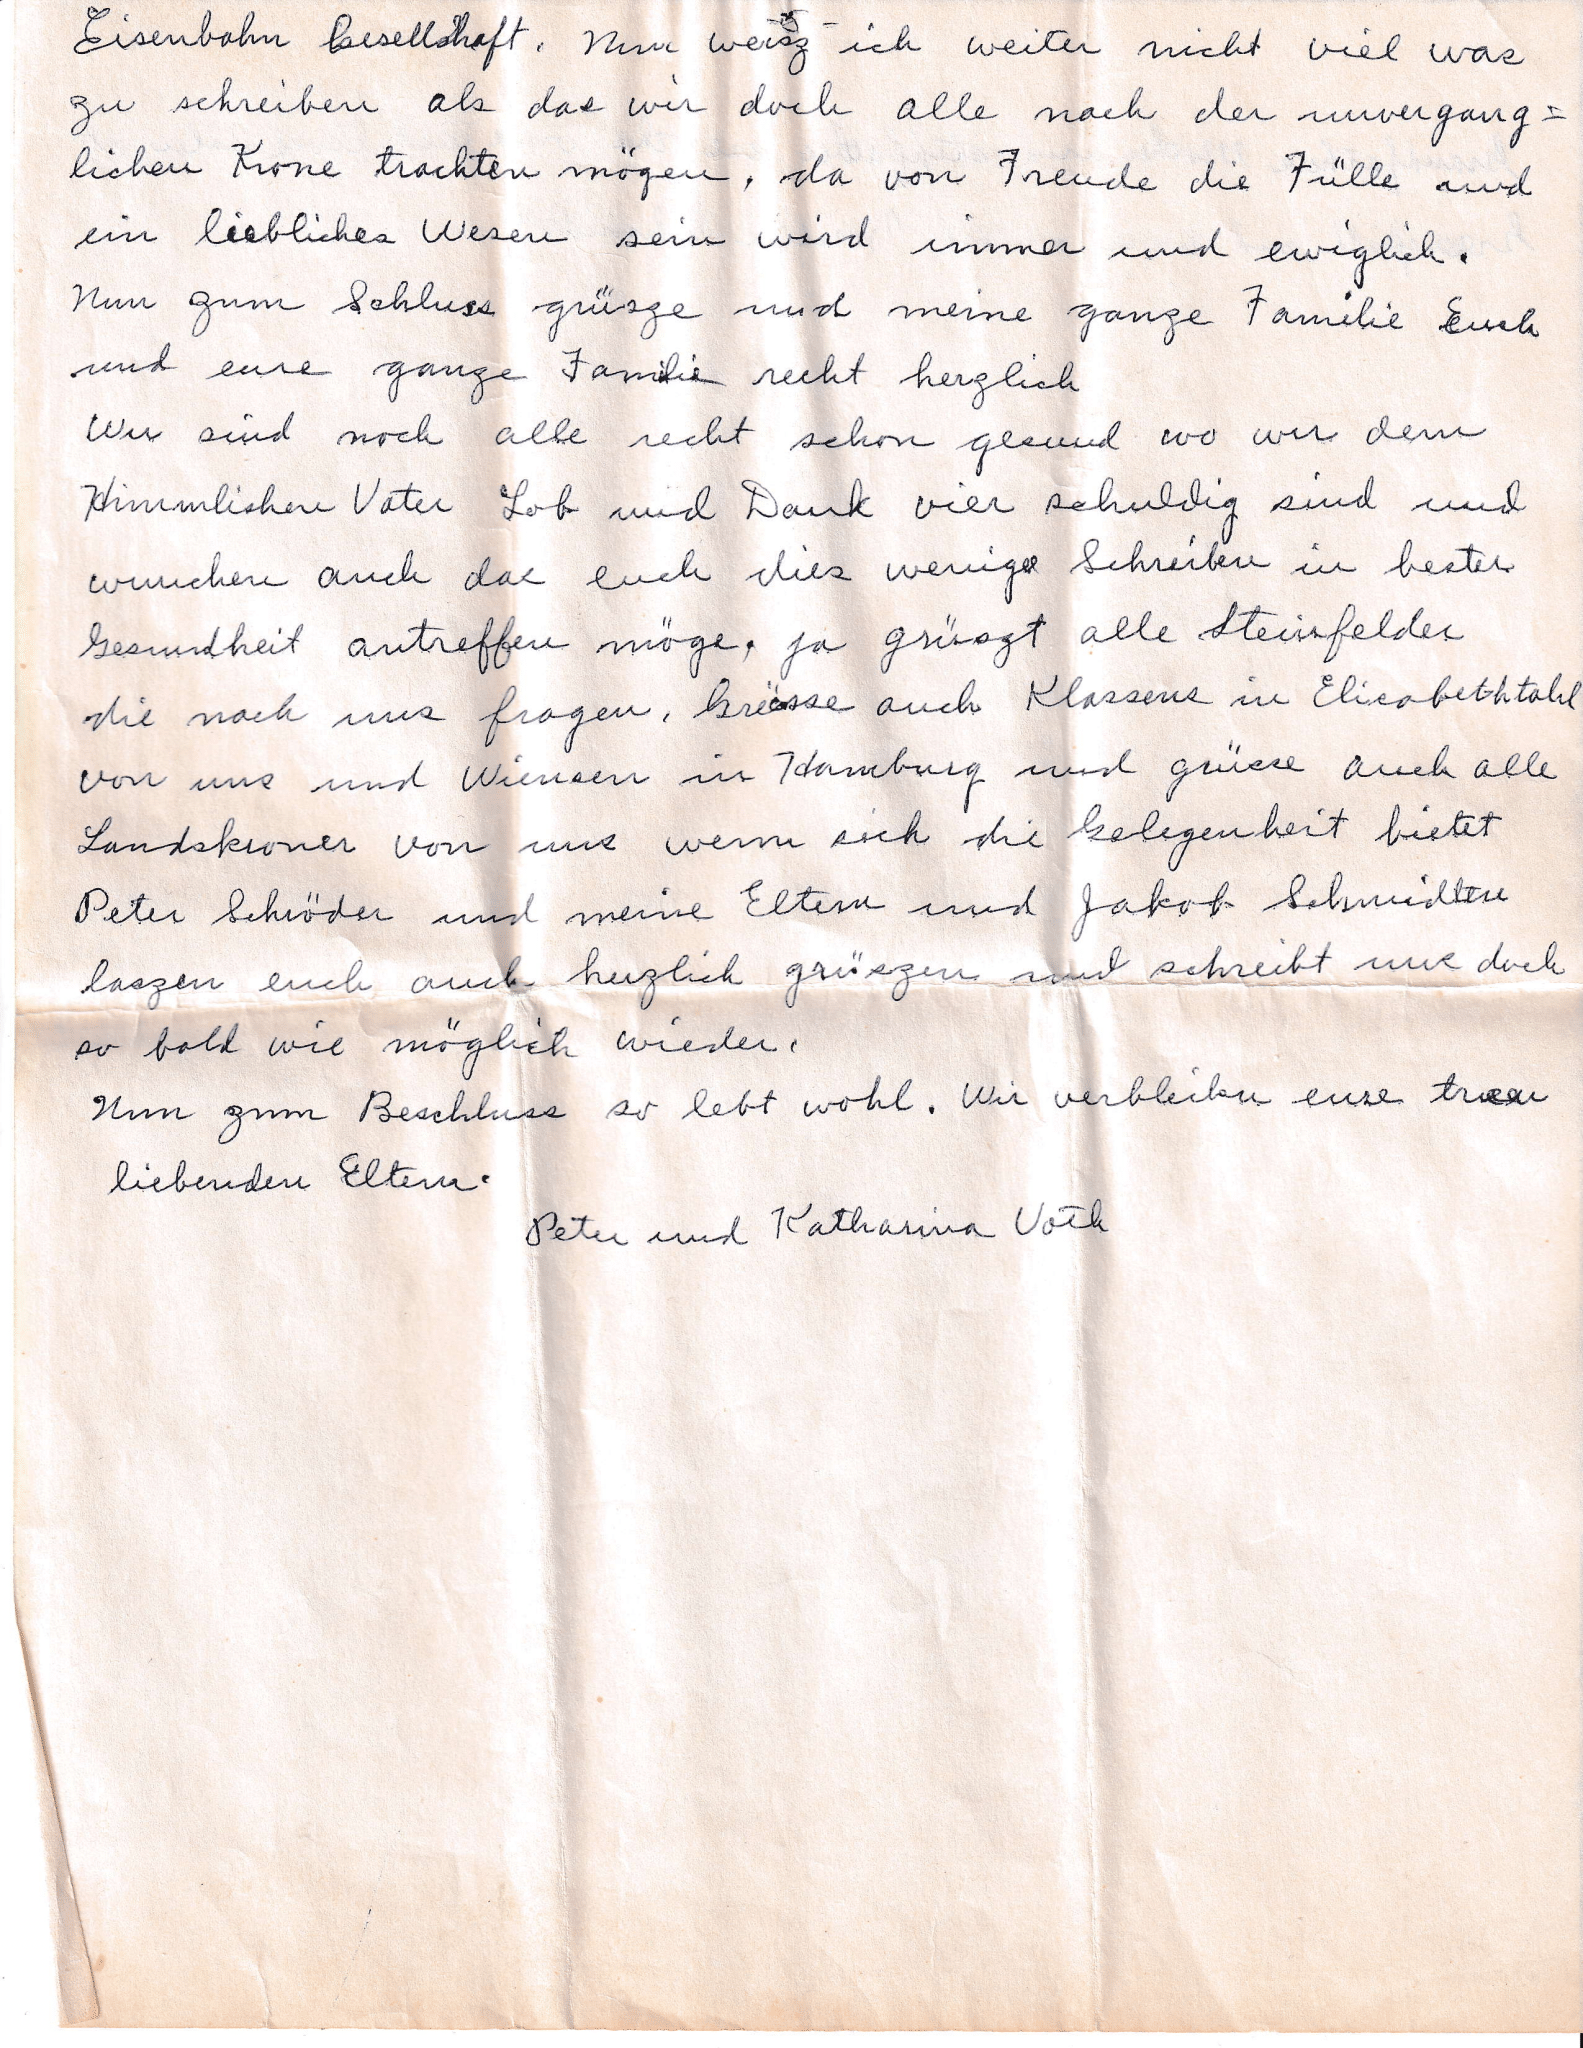 Eisenbahn Gesellschaft. Nun weisz ich weiter nicht viel was
zu schreiben als das wir doch alle nach der unvergang=
lichen Krone trachten mögen, da von Freude die Fülle und
ein liebliches Wesen sein wird immer und ewiglich.
Nun zum Schluss grüsze und meine ganze Familie Euch
und eure ganze Familie recht herzlich
Wir sind noch alle recht schon gesund wo wir dem
Himmlischen Vater Lob und Dank vier schuldig sind und
wunchen auch das euch dies wenige Schreiben in bester
Gesundheit antreffen möge, ja grüszt alle Steinfelder
die nach uns fragen, Grüsse auch Klassens in Elisabethtahl
von uns und Wiensen in Hamburg und grüsse auch alle
Landskroner von uns wenn sich die Gelegenheit bietet
Peter Schröder und meine Eltern und Jakob Schmidten
laszen euch auch herzlich grüszen und schreibt uns doch
so bald wie möglich wieder.
Nun zum Beschluss so lebt wohl. Wir verbleiben eure treu
liebenden Eltern.
Peter und Katharina Voth